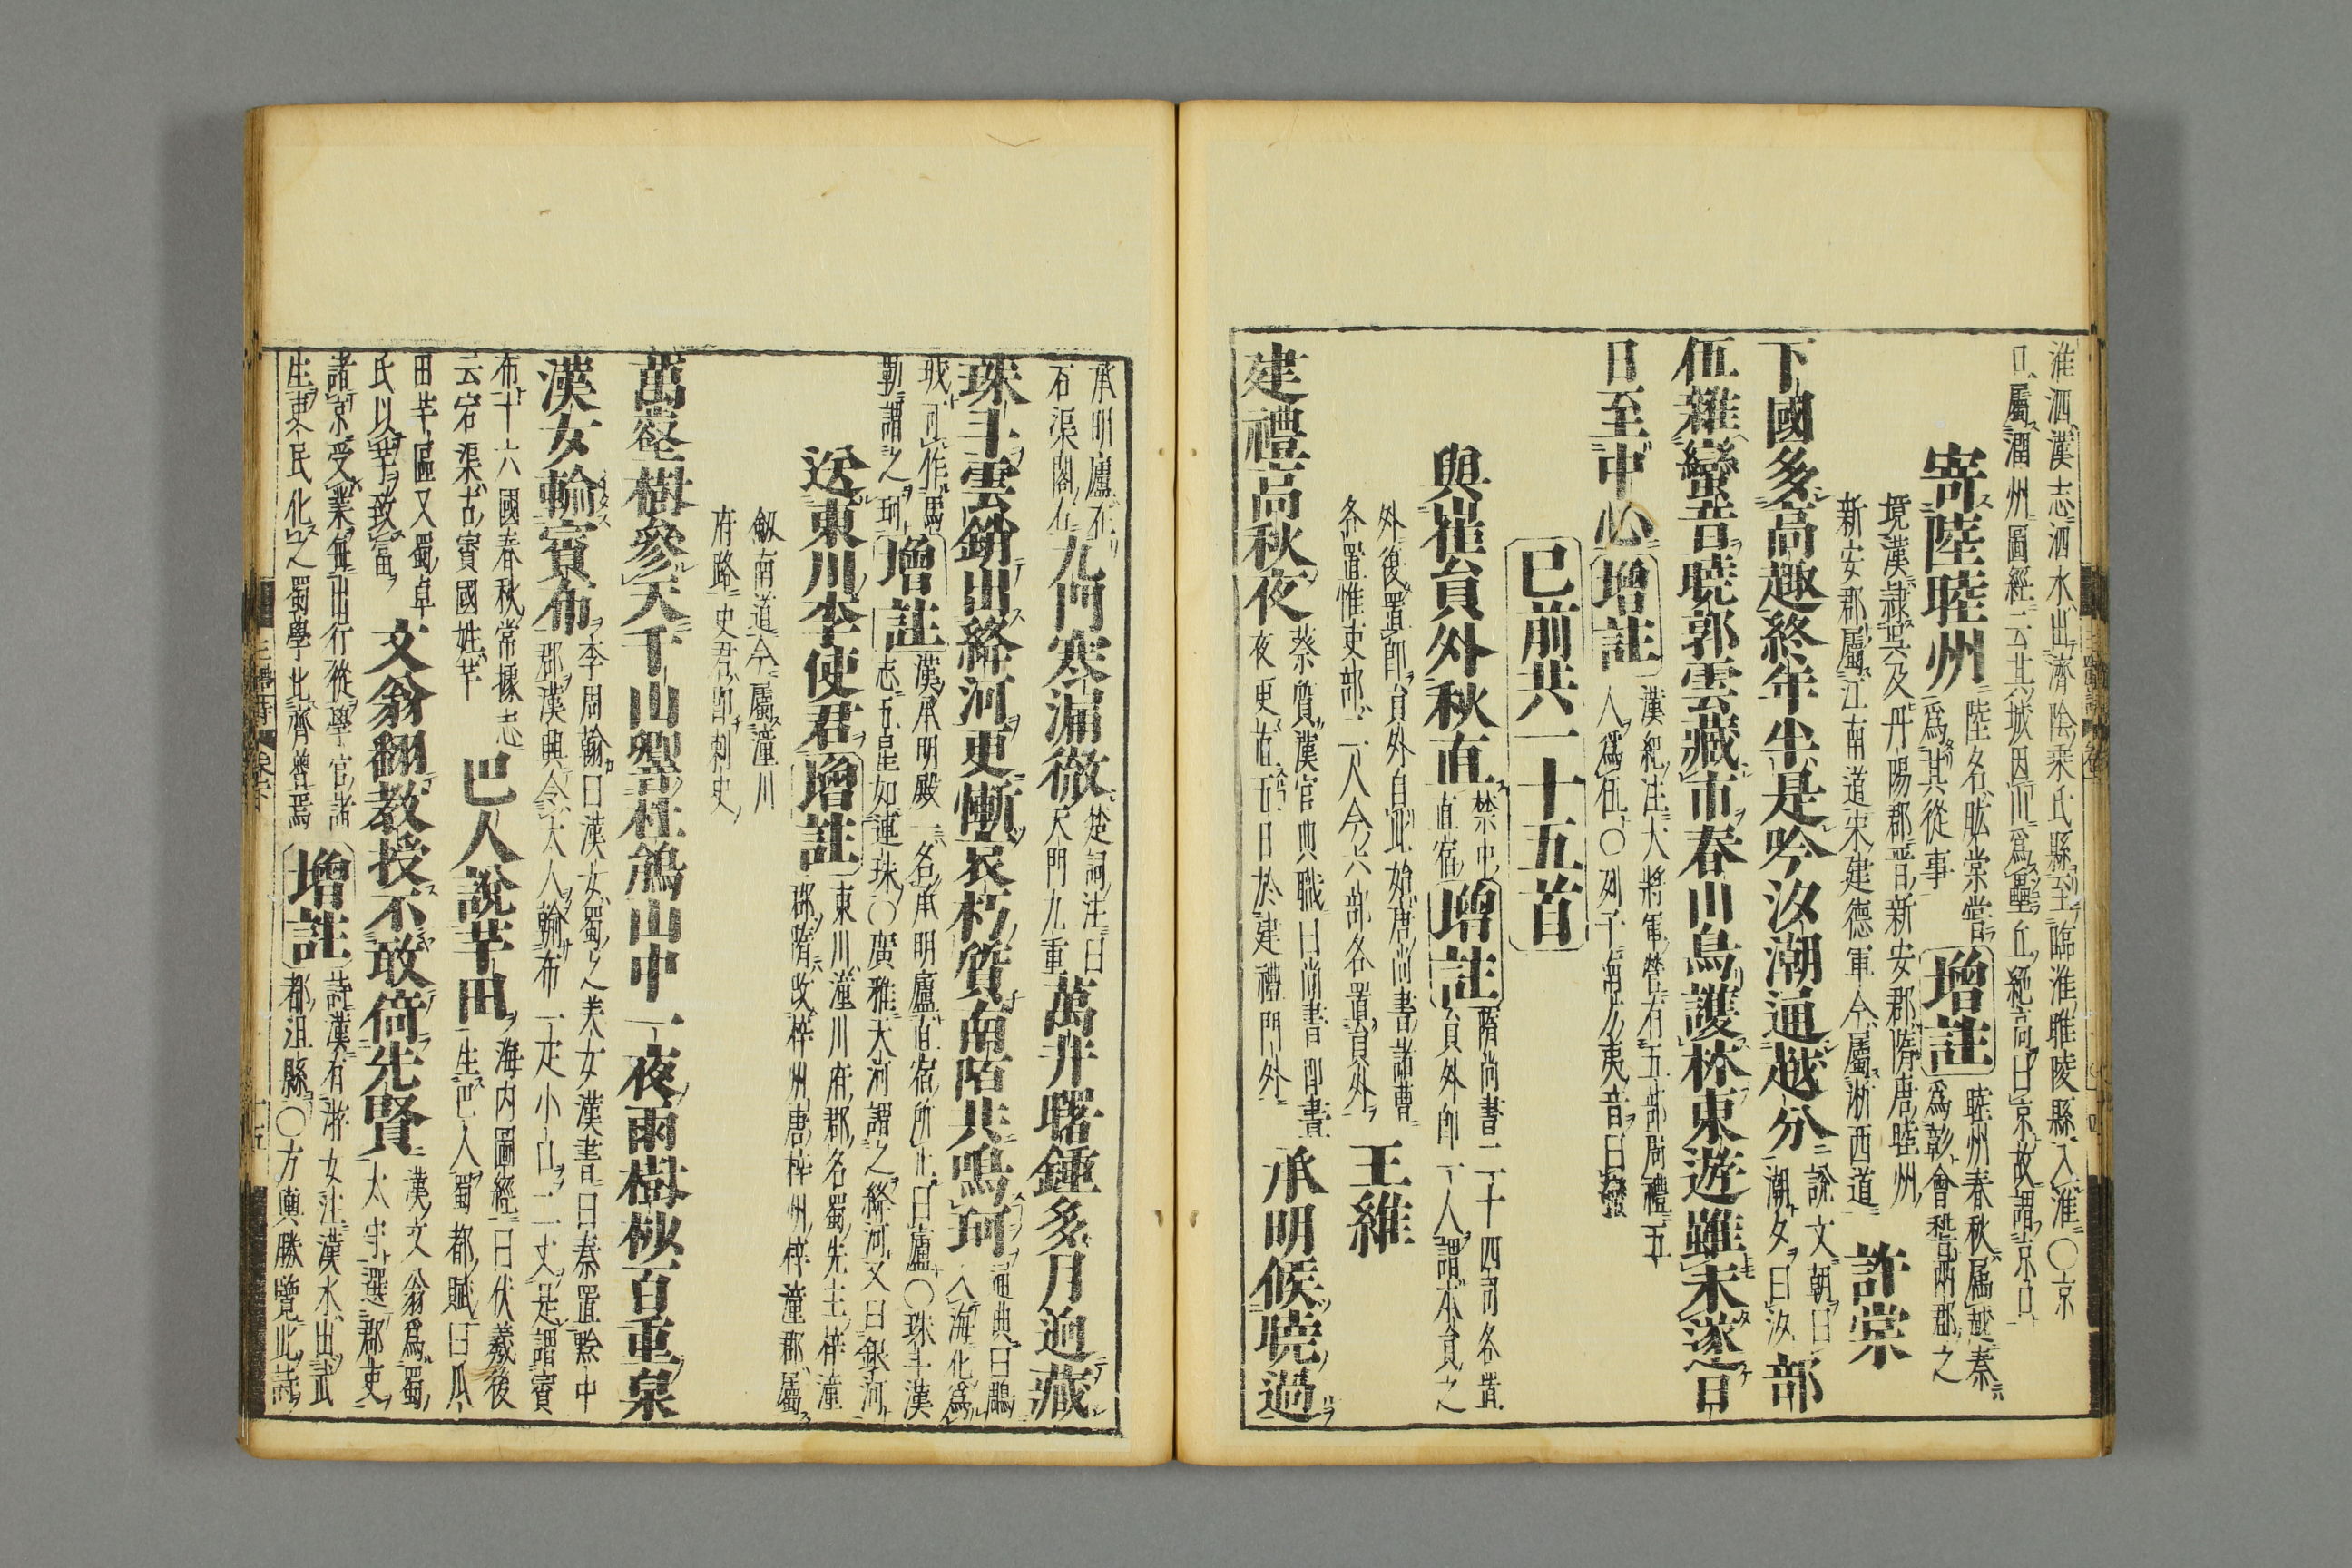 淮泗漢志泗水出濟陰乘氏縣到臨淮睢陵縣入淮○京
口屬潤州圖經云其城因川爲壘丘絕高曰京故謂京口
寄陸睦州
陸名肱棠嘗
爲其從事
增註
睦州春秋屬越秦
爲彰會稽兩郡之
境漢隷其及丹陽郡晋新安郡隋唐睦州
新安郡屬江南道宋建德軍今屬浙西道
許棠
下國多高趣終年半是吟汐潮通越分
說文朝曰
潮夕曰汐
部
伍雜蠻音曉郭雲藏市春山鳥護林東遊雖未遂
日至中心
增註
漢紀注大將軍營有五部周禮五
人爲伍○列子南方夷音曰蠻
已前共一十五首
與崔員外秋直
禁中
直宿
增註
隋尚書二十四司各置
員外郎一人謂本員之
外復置郎員外自此始唐尚書諸曹
各置惟吏部二人今六部各置員外
王維
建禮高秋夜
蔡質漢官典職曰尚書郎書
夜更直五日於建禮門外
承明候曉過
承明廬在
石渠閣外
九門寒漏徹
楚詞注曰
天門九重
萬井曙鍾多月迥藏
珠斗雲銷出絳河更慚衰朽質南陌共鳴珂
通典曰鵰
入海化爲
玳可作馬
勒謂之珂
增註
漢承明殿一名承明廬直宿所止曰廬○珠斗漢
志五星如連珠○廣雅天河謂之絳河又曰銀河
送東川李使君
增註
東川潼川府郡名蜀先主梓潼
郡隋改梓州唐梓州梓潼郡屬
劔南道今屬潼川
府路史君卽刺史
萬壑樹參天千山響杜鵑山中一夜雨樹杪百重泉
漢女輸賨布
李周翰曰漢女蜀之美女漢書曰秦置黔中
郡漢興令大人輸布一疋小口二丈是謂賨
布十六國春秋常據志
云宕渠古賨國姓芋
巴人說芋田
海内圖經曰伏羲後
生巴人蜀都賦曰瓜
田芋區又蜀卓
氏以芋致富
文翁翻教授不敢倚先賢
漢文翁爲蜀
太守選郡吏
諸京受業每出行從學官諸
生吏民化之蜀學比齊魯焉
增註
詩漢有游女注漢水出武
都沮縣○方輿勝覽此詩